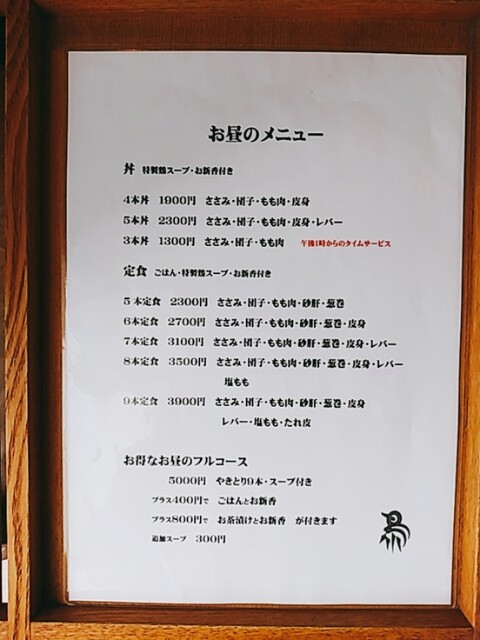 お昼のメニュー
丼 特製鶏スープ・お新香付き
4本丼 1900円 ささみ・団子・もも肉・皮身
5本丼 2300円 ささみ・団子・もも肉・皮身・レバー
3本丼 1300円 ささみ・団子・もも肉 午後1時からのタイムサービス
定食 ごはん・特製鶏スープ・お新香付き
5本定食 2300円 ささみ・団子・もも肉・砂肝・葱巻
6本定食 2700円 ささみ・団子・もも肉・砂肝・葱巻・皮身
7本定食 3100円 ささみ・団子・もも肉・砂肝・葱巻・皮身・レバー
8本定食 3500円 ささみ・団子・もも肉・砂肝・葱巻・皮身・レバー
塩もも
9本定食 3900円 ささみ・団子・もも肉・砂肝・葱巻・皮身
レバー・塩もも・たれ皮
お得なお昼のフルコース
5000円 やきとり9本・スープ付き
プラス400円で ごはんとお新香
プラス800円で お茶漬けとお新香 が付きます
追加スープ 300円